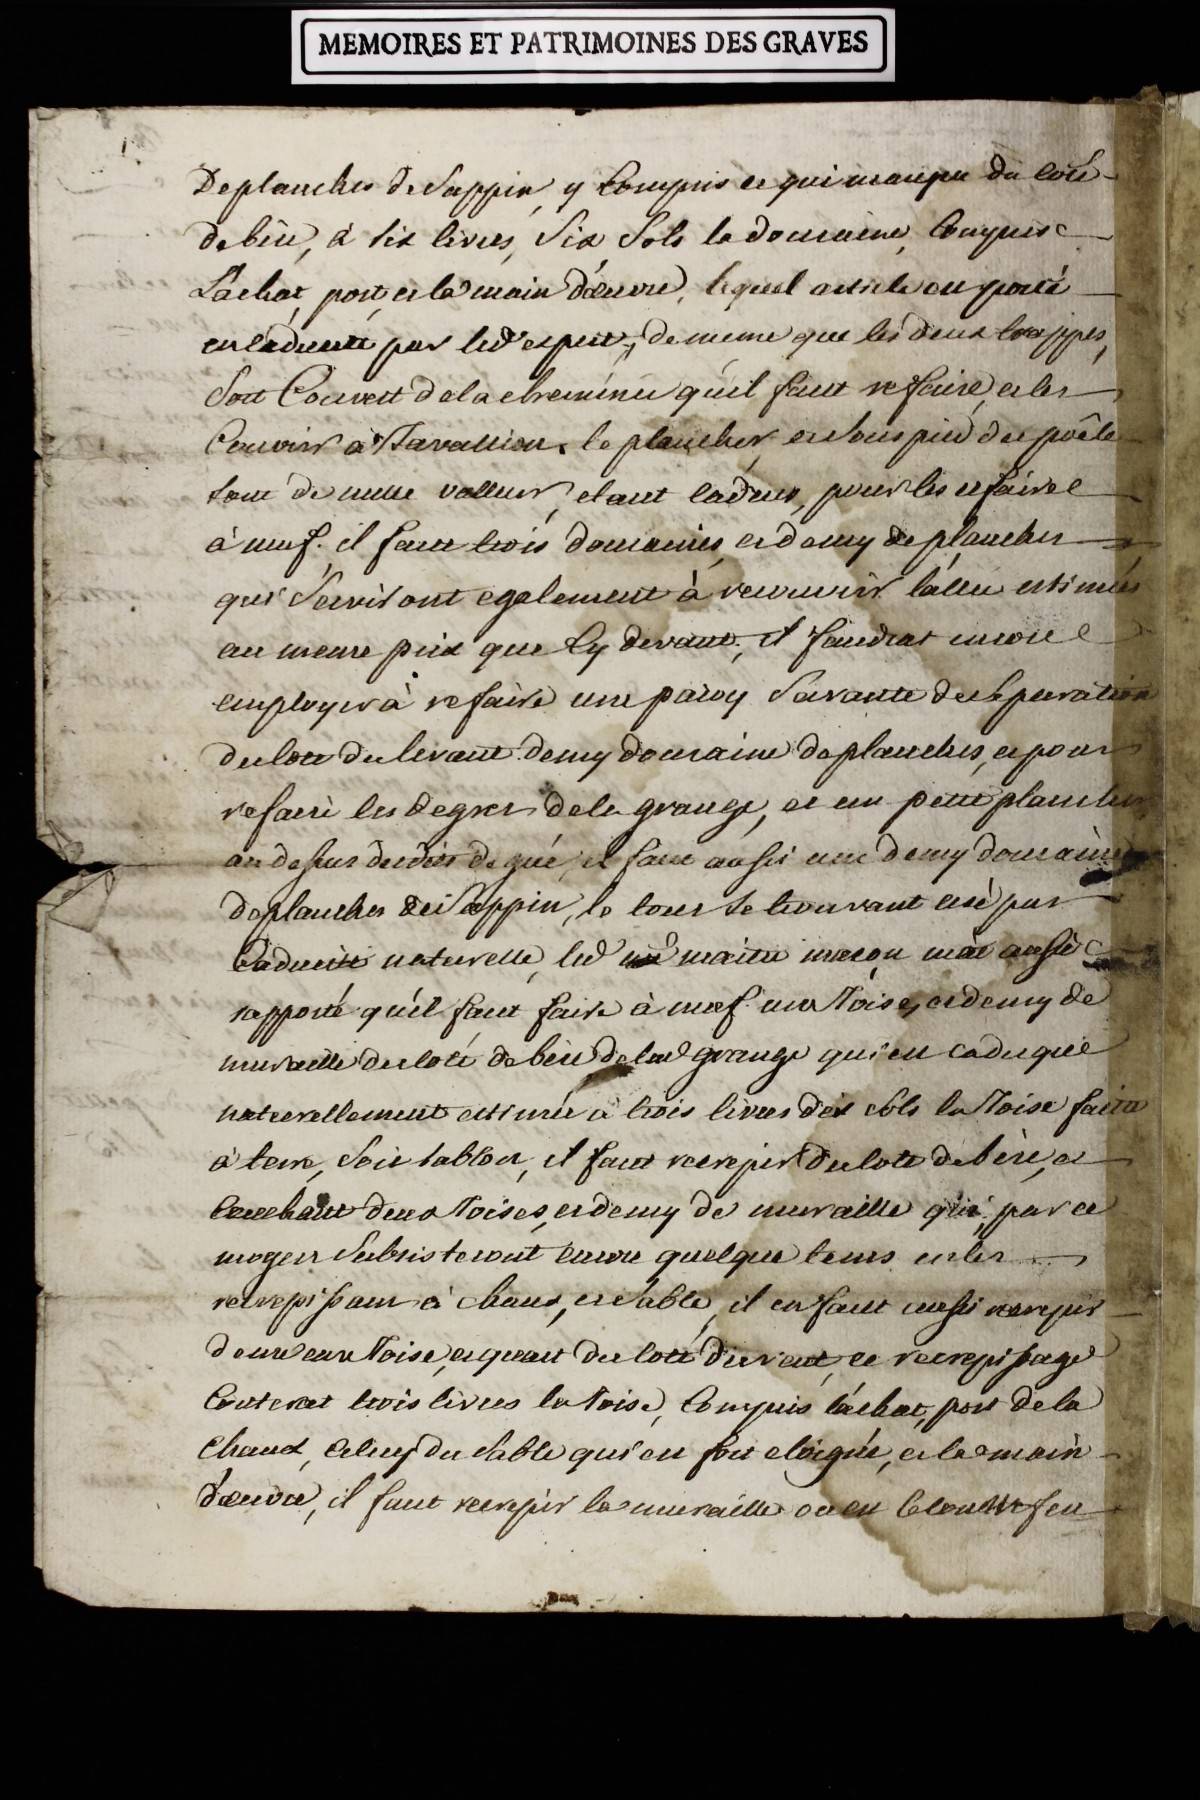 MEMOIRES ET PATRIMOINES DES GRAVES
De planches de Sappin, y Compris ce qui manque du coté
de bise, à six livres, Six Sols la douzaine, Compris
L'achat, port, et la main d'œuvre, lequel article est porté
en caducité par led expert, de meme que les deux trappes,
Soit Couvert de la cheminée qu'il faut refaire, et les
Couvrir à Tavallion. le plancher, et sous pied du poêle
sont de meme valleur, etant caducs, pour les refaire
à neuf. il faut trois douzaines, et demy de planches
qui Serviront egalement à recouvrir estimées
au meme prix que Cy devant, il faudrat encore
employer à refaire une paroy Servante de Separation
du coté du levant demy douzaine de planches, et pour
refaire les degrez de la grange, et un petit plancher
au dessus desdits degré, il faut aussi une demy douzaine
de planches de Sappin, le tout se trouvant usé par
Caducité naturelle, led maitre maçon m'at aussi
rapporté qu'il faut faire à neuf une Toise, et demy de
muraille du coté de bise de lad grange qui est caduque
naturellement estimée à trois livres dix sols la Toise faite
à terre, Soit sablon, il faut recrepir du coté de bise, et
Couchant deux Toises, et demy de muraille qui par ce
moyen Subsisteront encore quelque tems en les
recrepissant à chaux, et Sable, il en faut aussi recrepir
demy une Toise, et quart du coté du vent, ce recrepissage
Couterat trois livres la Toise, Compris l'achat, port de la
Chaux, Celuy du Sable qui est fort eloigné, et la main
d'œuvre, il faut recrepir la muraille ou est le contrefeu